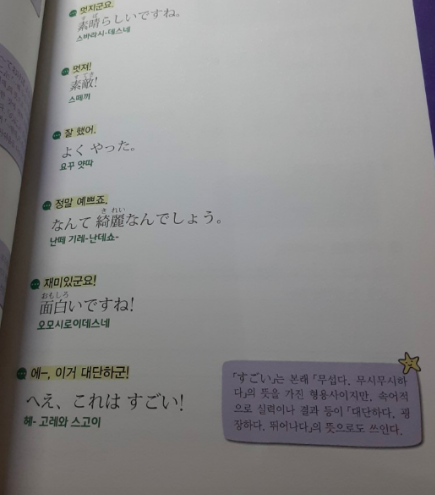 멋지군요.
素晴らしいですね。
스바라시-데스네
멋져!
素敵!
스떼끼
잘 했어.
よく やった。
요꾸 얏따
정말 예쁘죠.
なんて 綺麗なんでしょう。
난떼 기레-난데쇼-
재미있군요!
面白いですね!
오모시로이데스네
에-, 이거 대단하군!
へえ、これは すごい!
헤- 고레와 스고이
「すごい」는 본래 「무섭다, 무시무시하
다」의 뜻을 가진 형용사이지만, 속어적
으로 실력이나 결과 등이 「대단하다, 굉
장하다, 뛰어나다」의 뜻으로도 쓰인다.